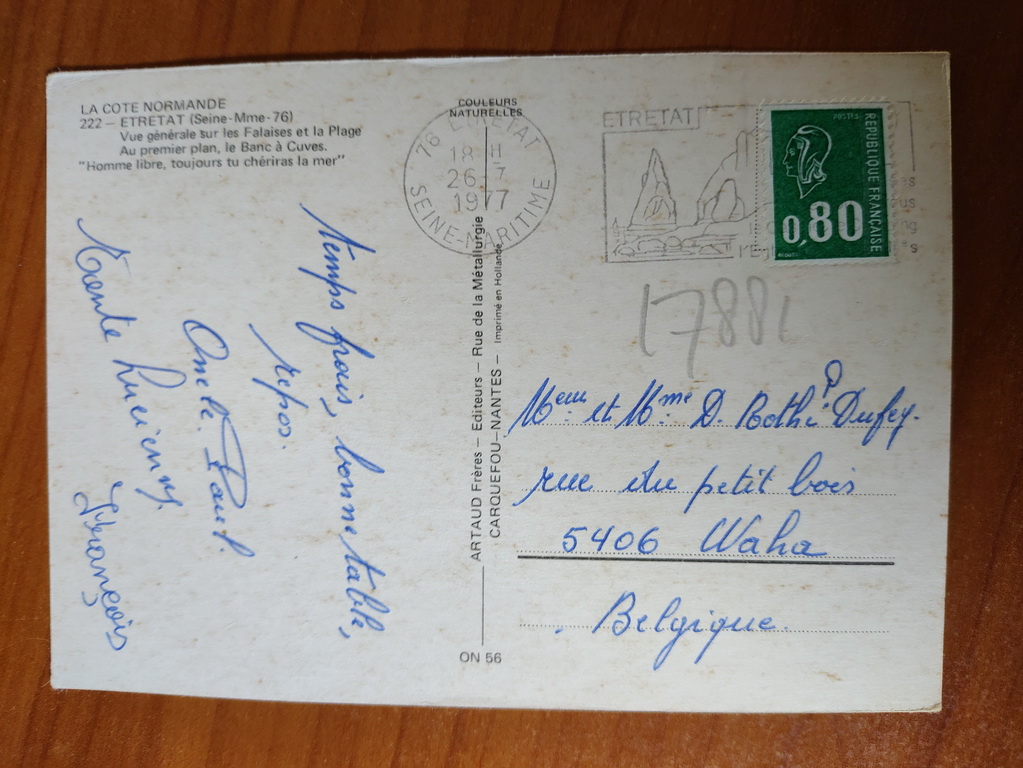 LA COTE NORMANDE
222 – ETRETAT (Seine-Mme-76)
Vue générale sur les Falaises et la Plage
Au premier plan, le Banc à Cuves.
"Homme libre, toujours tu chériras la mer"
COULEURS
NATURELLES
76 ETRETAT
18 H
26 - 7
1977
SEINE-MARITIME
ETRETAT
POSTES
REPUBLIQUE FRANÇAISE
0,80
17881
Temps frais, bonne table,
repos.
Oncle Paul.
Tante Lucienne
François
ARTAUD Frères – Editeurs – Rue de la Métallurgie
CARQUEFOU-NANTES – Imprimé en Hollande
ON 56
et Mme D. Dufey.
rue du petit bois
5406 Waha
Belgique.